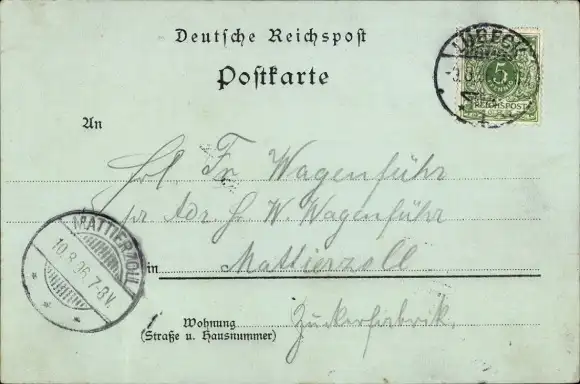 Deutsche Reichspost
Postkarte
LÜBECK
5
REICHSPOST
An
Frl Fr Wagenführ
pr Adr H W. Wagenführ
MATTIERZOLL
10.8.96 7-8V.
in Mattierzoll
Wohnung
(Straße u. Hausnummer)
Zuckerfabrik.